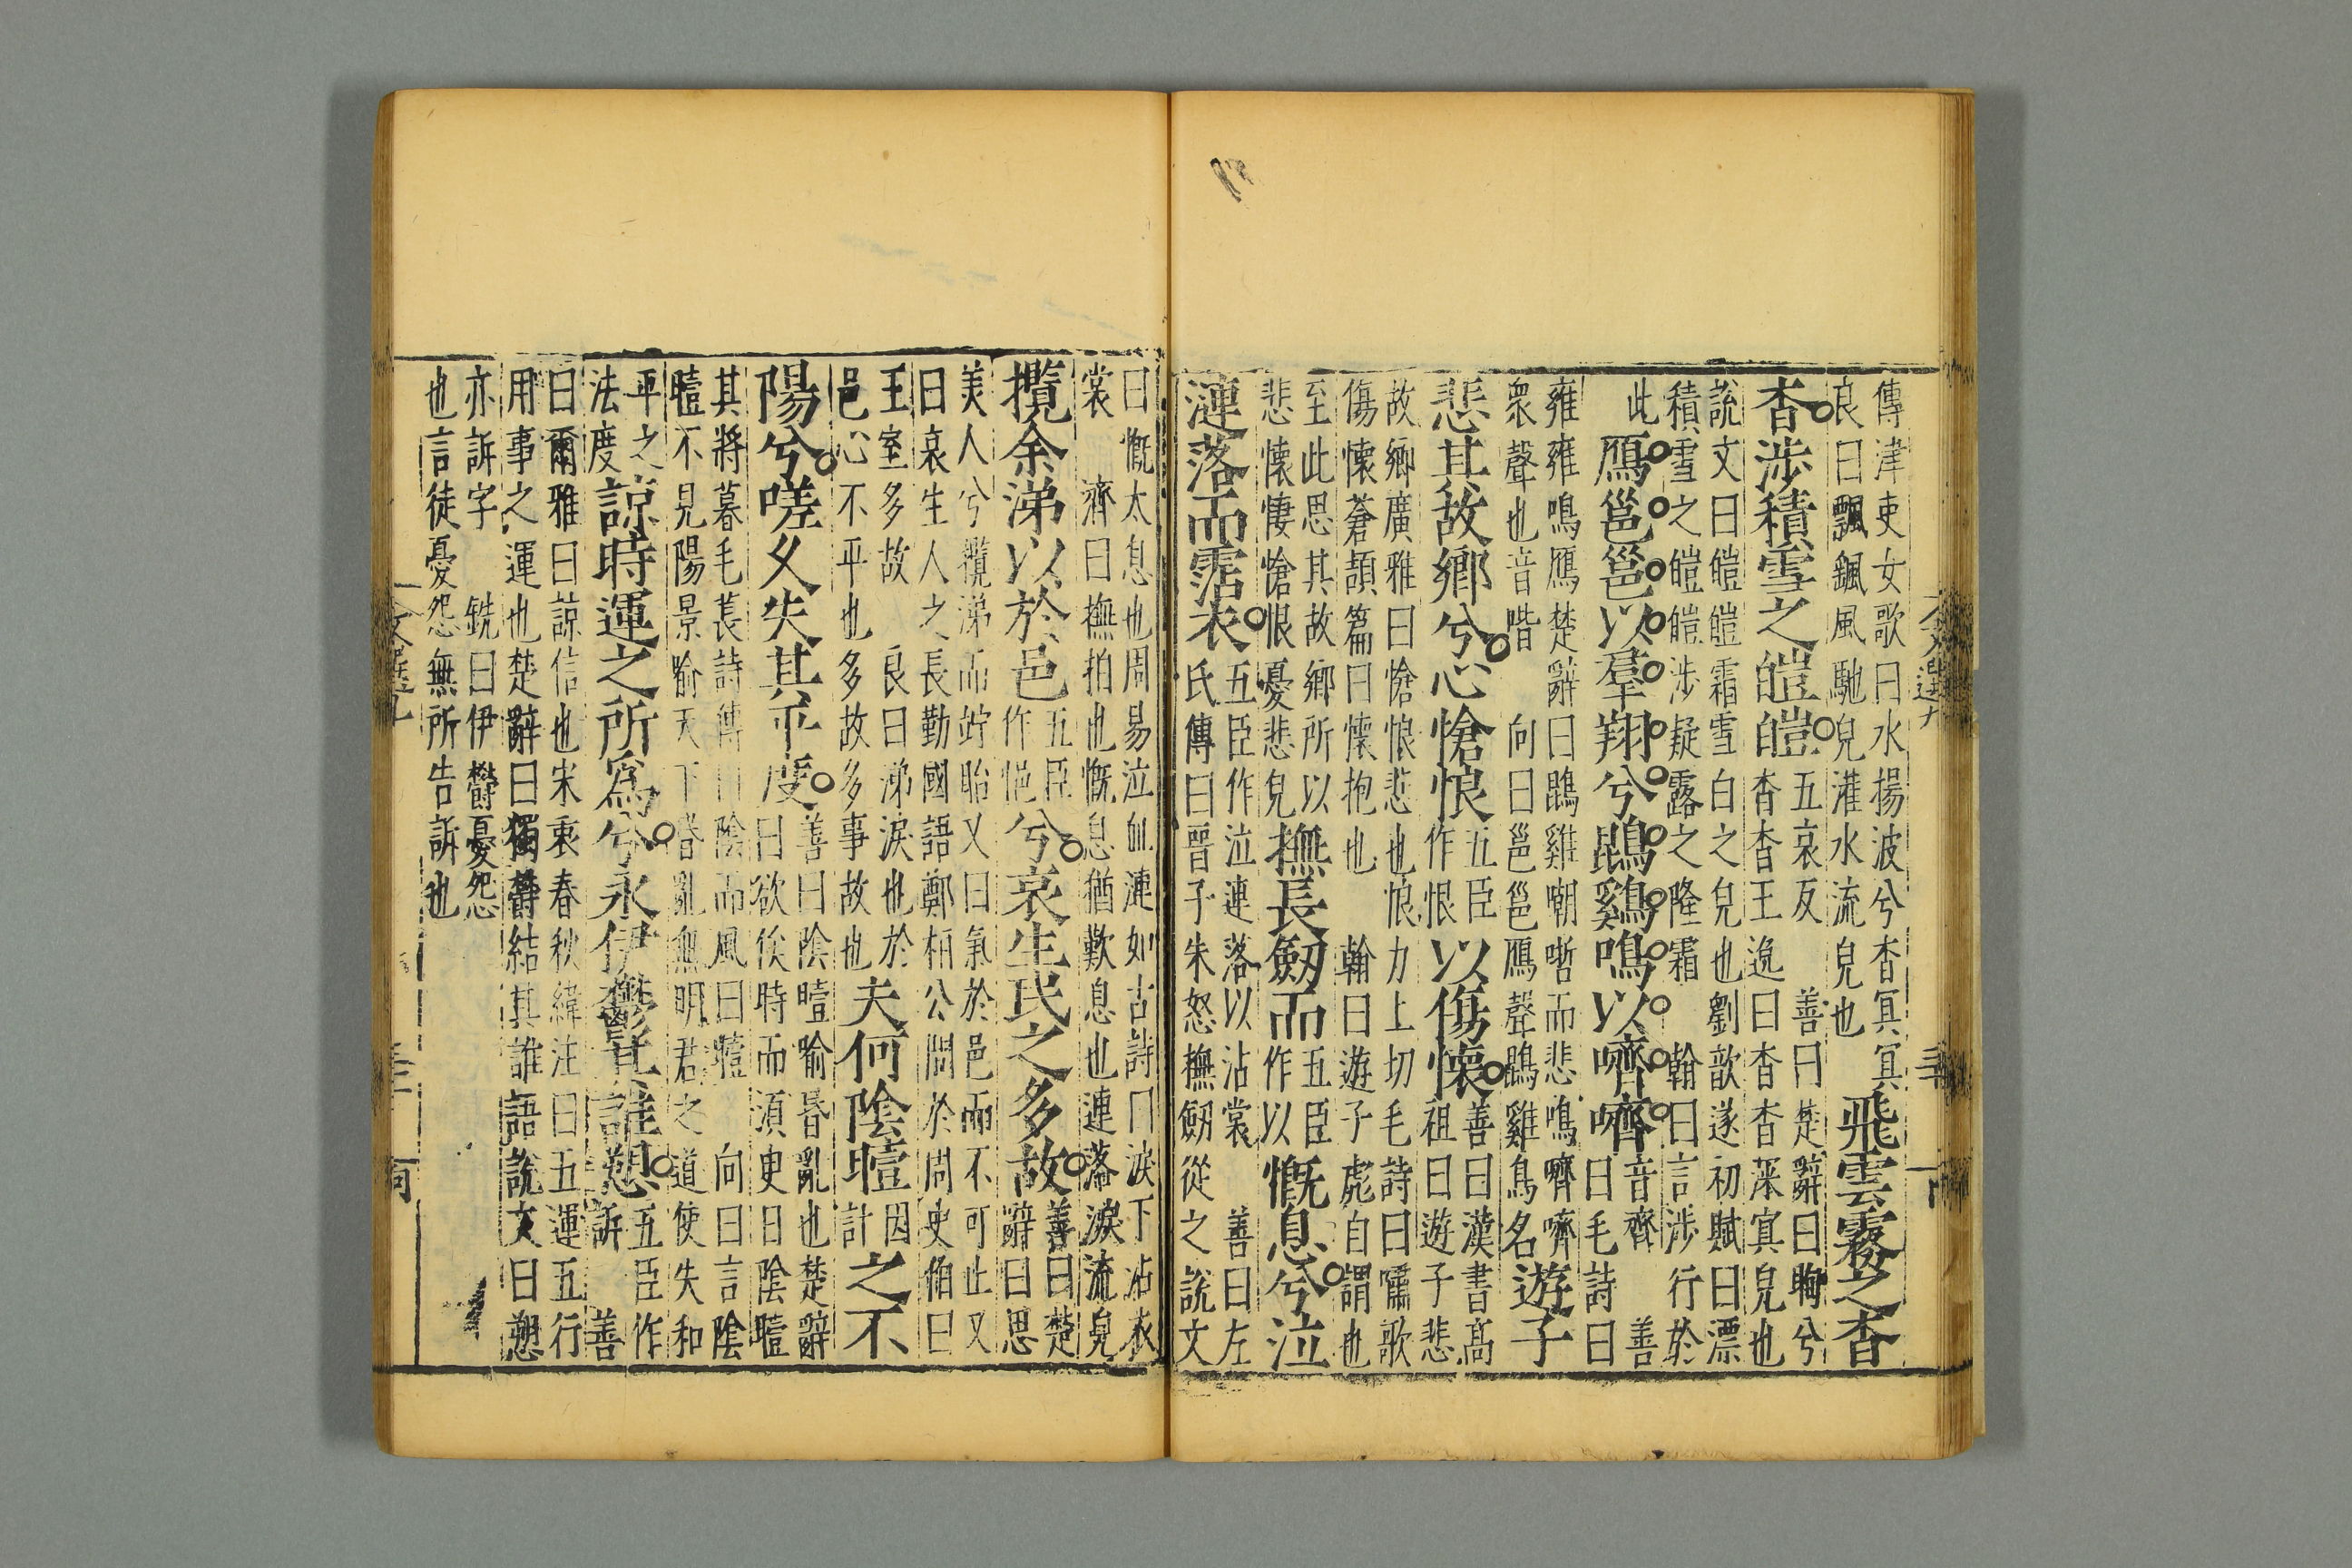 傳津吏女歌曰水揚波兮杳冥冥
良曰飄飖風馳皃灌水流皃也
飛雲霧之杳
杳涉積雪之皚皚
五哀反 善曰楚辭曰眴兮
杳杳王逸曰杳杳深冥皃也
說文曰皚皚霜雪白之皃也劉歆遂初賦曰漂
積雪之皚皚涉凝露之隆霜 翰曰言涉行於
此
鴈邕邕以羣翔兮鵾鷄鳴以嚌嚌
音齊 善
曰毛詩曰
雍雍鳴鴈楚辭曰鵾雞嘲哳而悲鳴嚌嚌
衆聲也音喈 向曰邕邕鴈聲鵾雞鳥名
遊子
悲其故鄉兮心愴悢
五臣
作恨
以傷懷
善曰漢書高
祖曰遊子悲
故鄉廣雅曰愴悢悲也悢力上切毛詩曰嘯歌
傷懷蒼頡篇曰懷抱也 翰曰遊子彪自謂也
至此思其故鄉所以
悲懷悽愴恨憂悲皃
撫長劒而
五臣
作以
慨息兮泣
漣落而霑衣
五臣作泣連落以沾裳 善曰左
氏傳曰晉子朱怒撫劒從之說文
曰慨太息也周易泣血漣如古詩曰淚下沾衣
裳 濟曰撫拍也慨息猶歎息也連落淚流皃
攬余涕以於邑
五臣
作悒
兮哀生民之多故
善曰楚
辭曰思
美人兮攬涕而竚眙又曰氣於邑而不可止又
曰哀生人之長勤國語鄭桓公問於周史伯曰
王室多故 良曰涕淚也於
邑心不平也多故多事故也
夫何陰曀
因
計
之不
陽兮嗟久失其平度
善曰陰曀喻昏亂也楚辭
曰欲俟時而須吏日陰曀
其將暮毛萇詩傳曰陰而風曰曀 向曰言陰
曀不見陽景喻天下昏亂無明君之道使失和
平之
法度
諒時運之所爲兮永伊鬱其誰愬
五臣作
訴 善
曰爾雅曰諒信也宋衷春秋緯注曰五運五行
用事之運也楚辭曰獨鬱結其誰語說文曰愬
亦訴字 銑曰伊鬱憂怨
也言徒憂怨無所告訴也